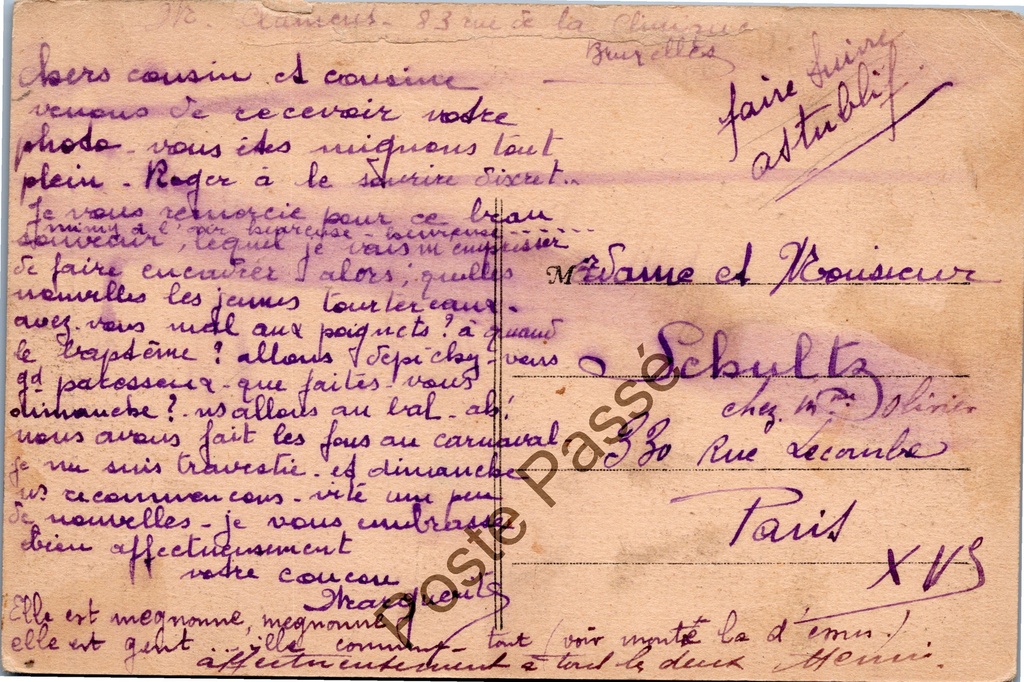 83 rue de la
Bruxelles
faire suivre
astublif
chers cousin et cousine
venons de recevoir votre
photo - vous êtes mignons tout
plein - Roger à le sourire discret..
Je vous remercie pour ce beau
mimy à l'air heureuse - heureuse ......
souvenir, lequel je vais m'empresser
de faire encadrer alors, quelles
nouvelles les jeunes tourtereaux -
avez-vous mal aux poignets ? à quand
le baptême ? allons dépêchez-vous
gd paresseux - que faites-vous
dimanche ? - ns allons au bal - ah!
nous avons fait les fous au carnaval -
je me suis travestie - et dimanche
ns recommencons - vite une peu
de nouvelles - je vous embrasse
bien affectueusement
votre
Marguerite
Elle est megnonne, megnonne
elle est gent ... ille comme tout (voir
affectueusement à tous les deux Henri.
Madame et Monsieur
Schultz
chez Mme Olivier
330 Rue Lecombe
Paris
XVs
Poste Passé